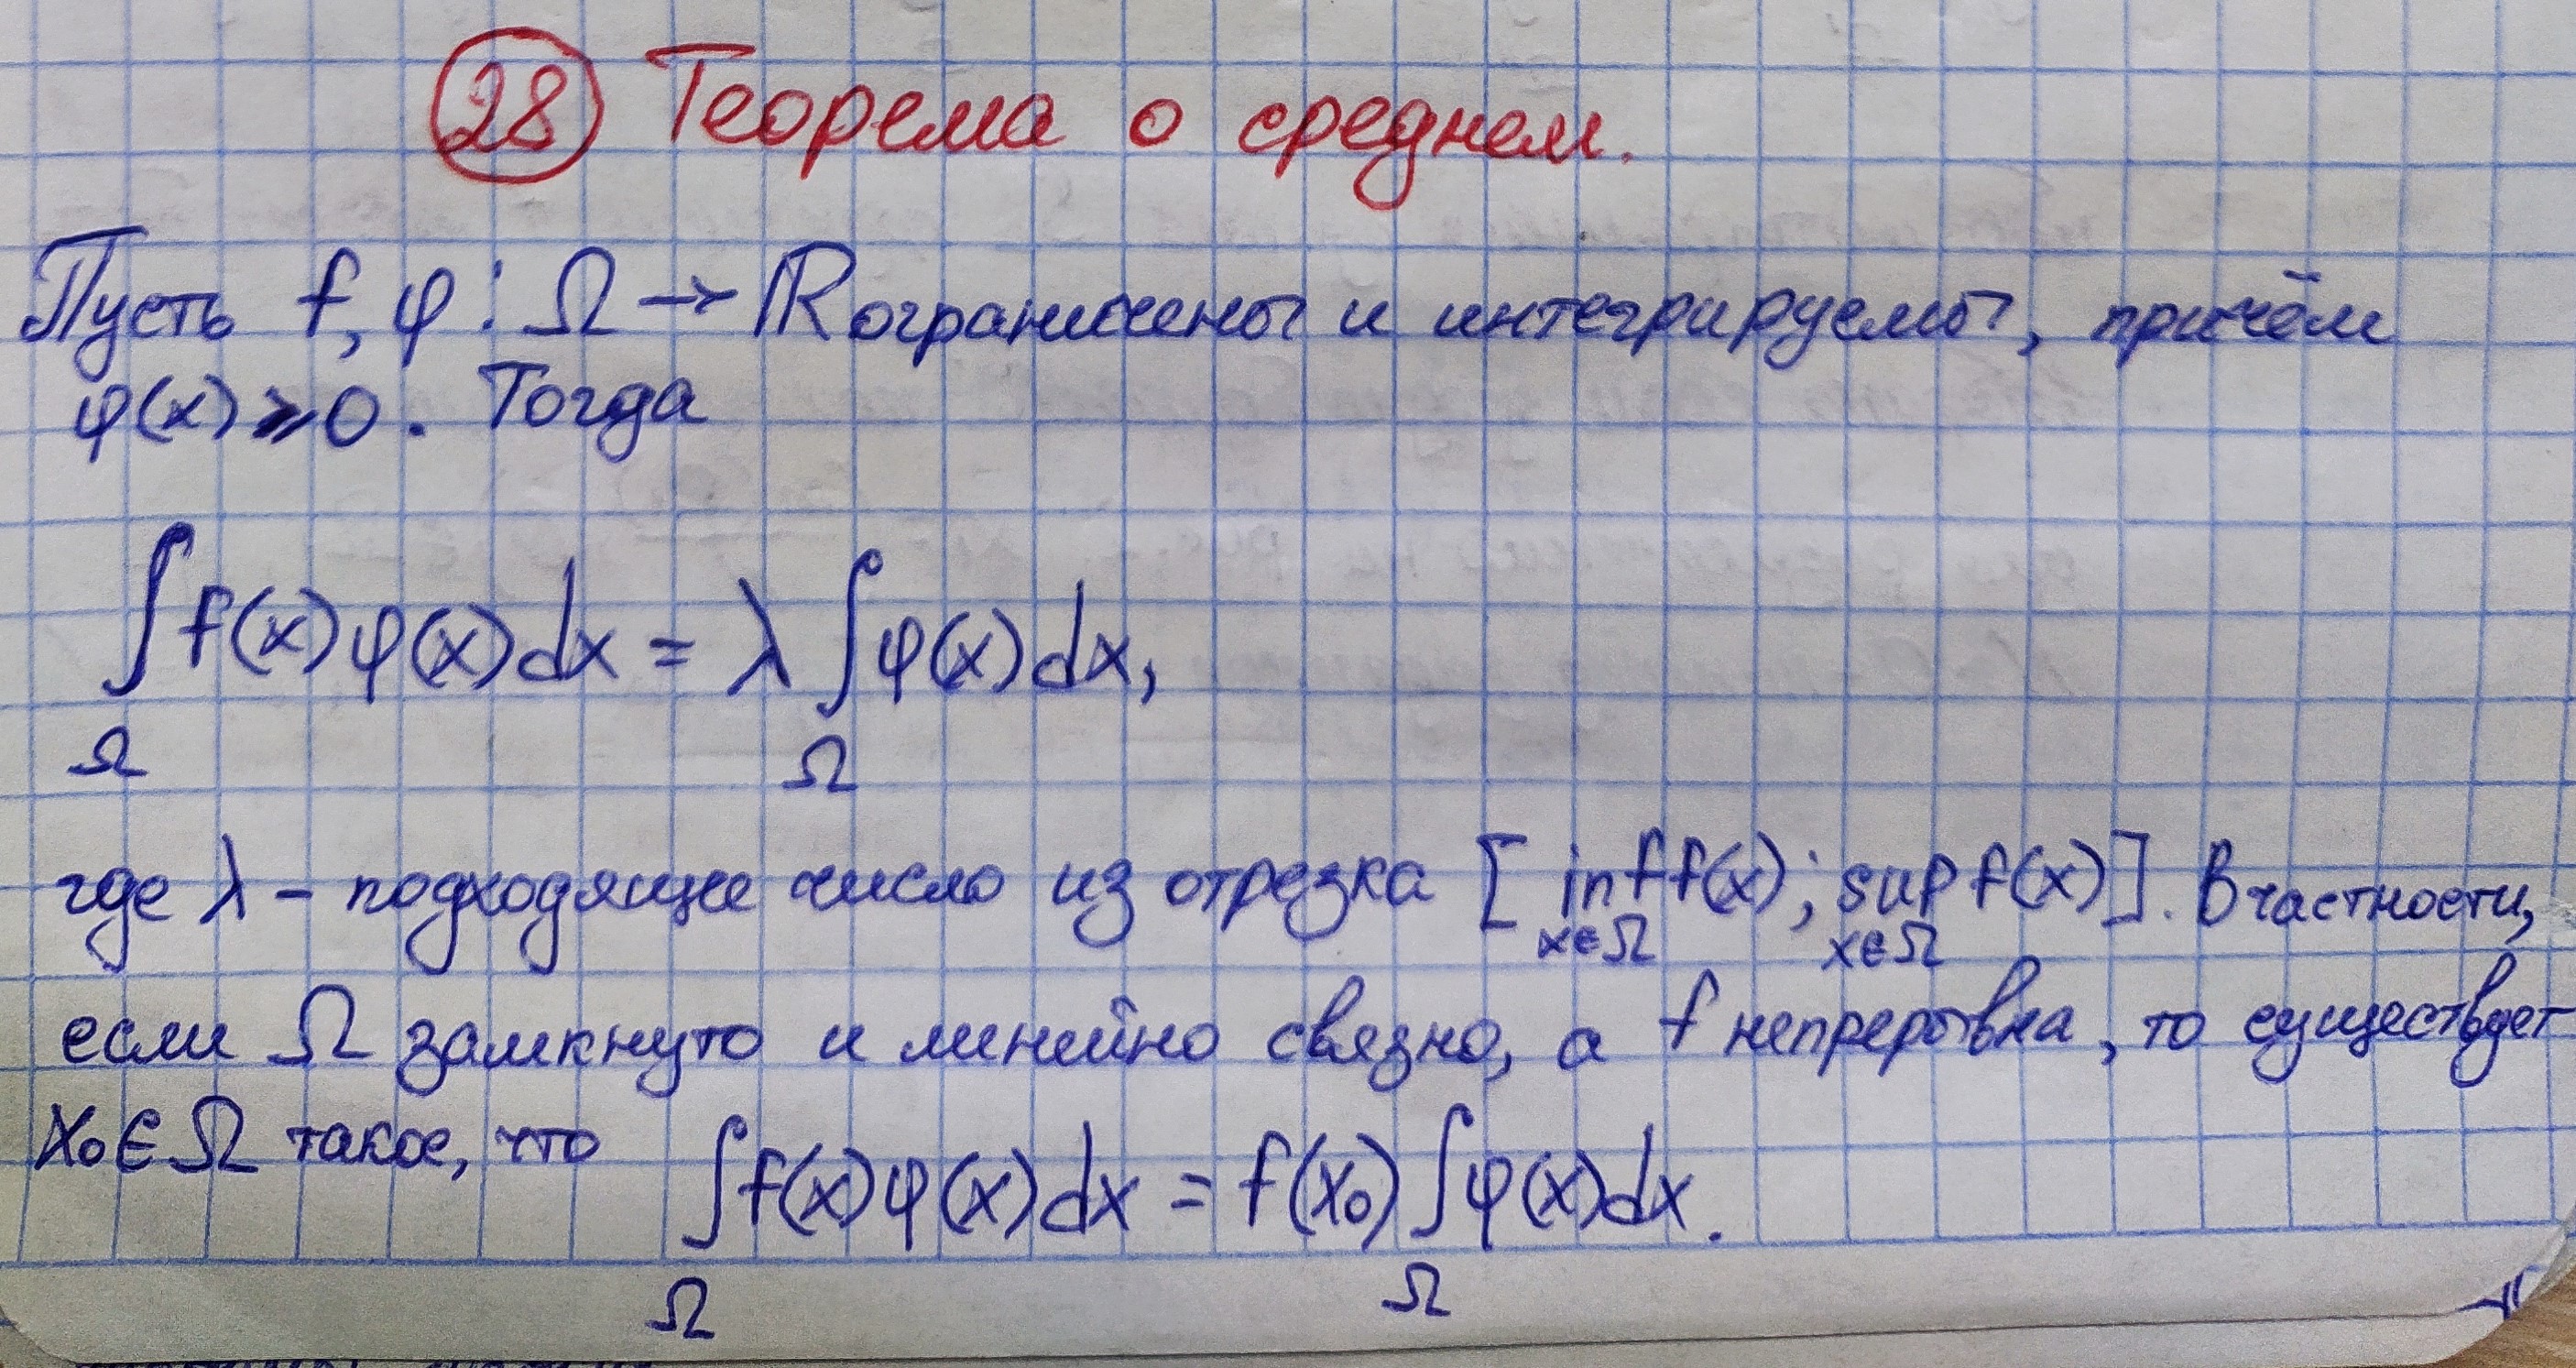 28 Теорема о среднем.
Пусть f, φ : Ω → ℝ ограничены и интегрируемы, причём
φ(x) ⩾ 0. Тогда
∫_Ω f(x) φ(x) dx = λ ∫_Ω φ(x) dx,
где λ – подходящее число из отрезка [inf_{x∈Ω} f(x); sup_{x∈Ω} f(x)]. В частности,
если Ω замкнуто и линейно связно, а f непрерывна, то существует
x₀ ∈ Ω такое, что ∫_Ω f(x) φ(x) dx = f(x₀) ∫_Ω φ(x) dx.